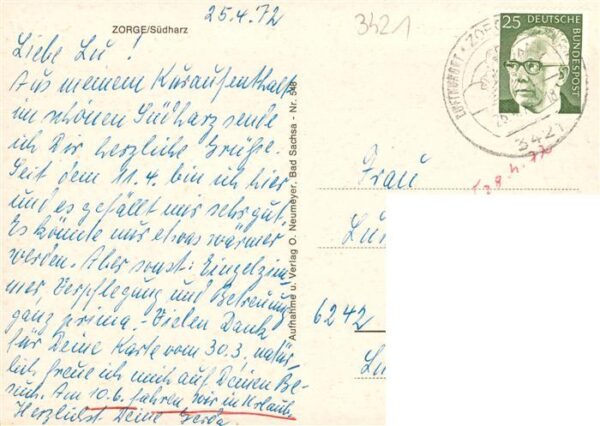 ZORGE/Südharz
25.4.72
3421
Liebe Lu!
Aus meinem Kuraufenthalt
im schönen Südharz sende
ich Dir herzliche Grüße.
Seit dem 11.4. bin ich hier
und es gefällt mir sehr gut.
Es könnte nur etwas wärmer
werden. Aber sonst: Einzelzim-
mer, Verpflegung und Betreuung
ganz prima. - Vielen Dank
für Deine Karte vom 30.3. natür-
lich freue ich mich auf Deinen Be-
such. Am 10.6. fahren wir in Urlaub.
Herzlichst Deine Gerda
Aufnahme u. Verlag O. Neumeyer, Bad Sachsa - Nr. 548
25 DEUTSCHE
BUNDESPOST
LUFTKURORT
3421
28.4.72
Frau
6242